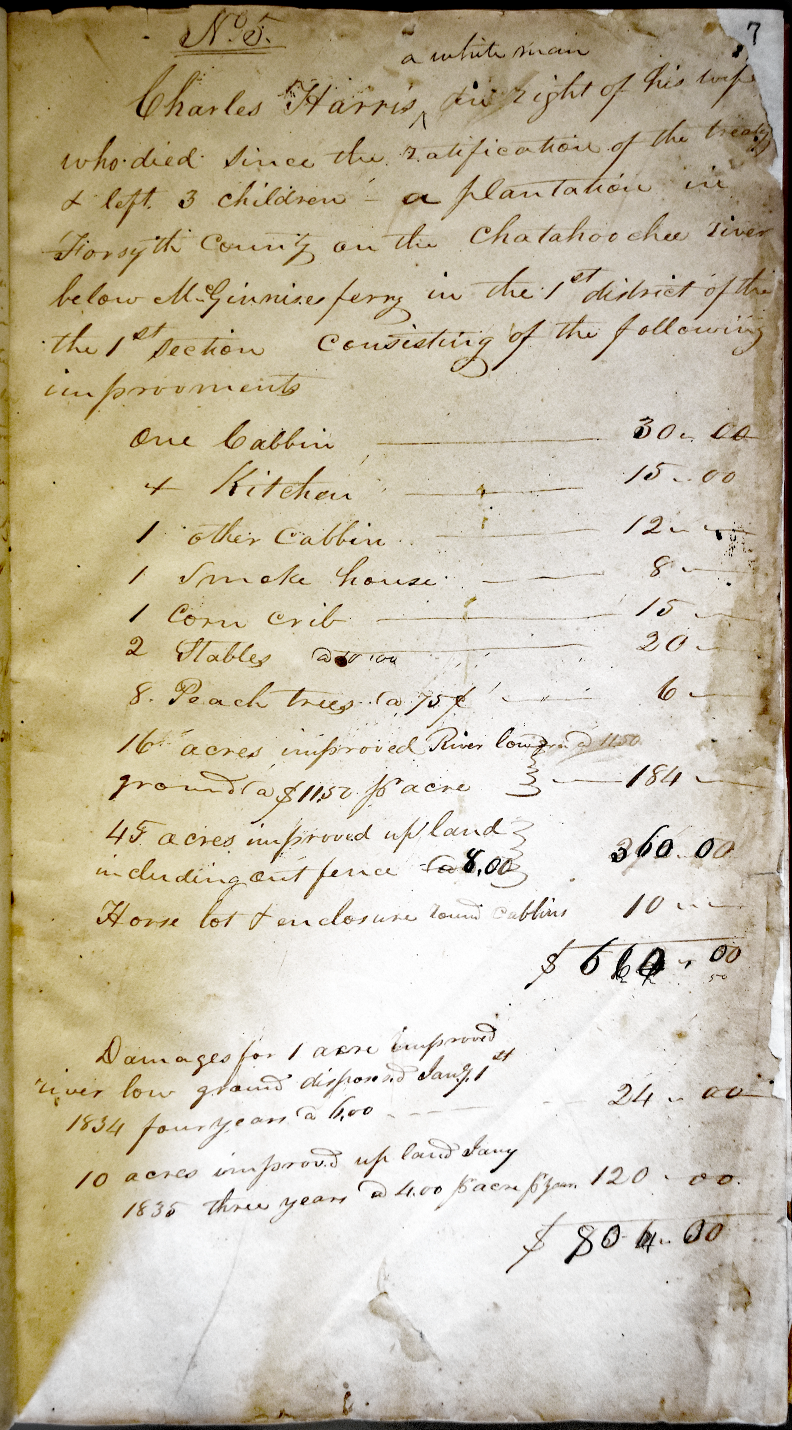 7
No. 5.
a white man
Charles Harris ^ in right of his wife
who died since the ratification of the treaty
& left 3 children - a plantation in
Forsyth County on the Chatahoochee river
below McGinnises ferry in the 1st district of the
the 1st section consisting of the following
improoments
One Cabbin 30 - 00
+ Kitchen 15 - 00
1 other Cabbin 12 - -
1 Smoke house 8 -
1 Corn crib 15 -
2 Stables @ 10.00 20 -
8 Peach trees @ 75¢ 6 -
16 acres improved River low
ground @ $11.50 pr acre 184 -
45 acres improved up land
including out fence @ 8.00 360.00
Horse lot & enclosure round cabbins 10 - -
$ 660 - 00
Damages for 1 acre improved
river low ground disposesd Jany. 1st
1834 four years @ 6,00 24 - 00
10 acres improvd up land Jany
1835 three years @ 4.00 pr acre pr year 120 - 00.
$ 804 - 00